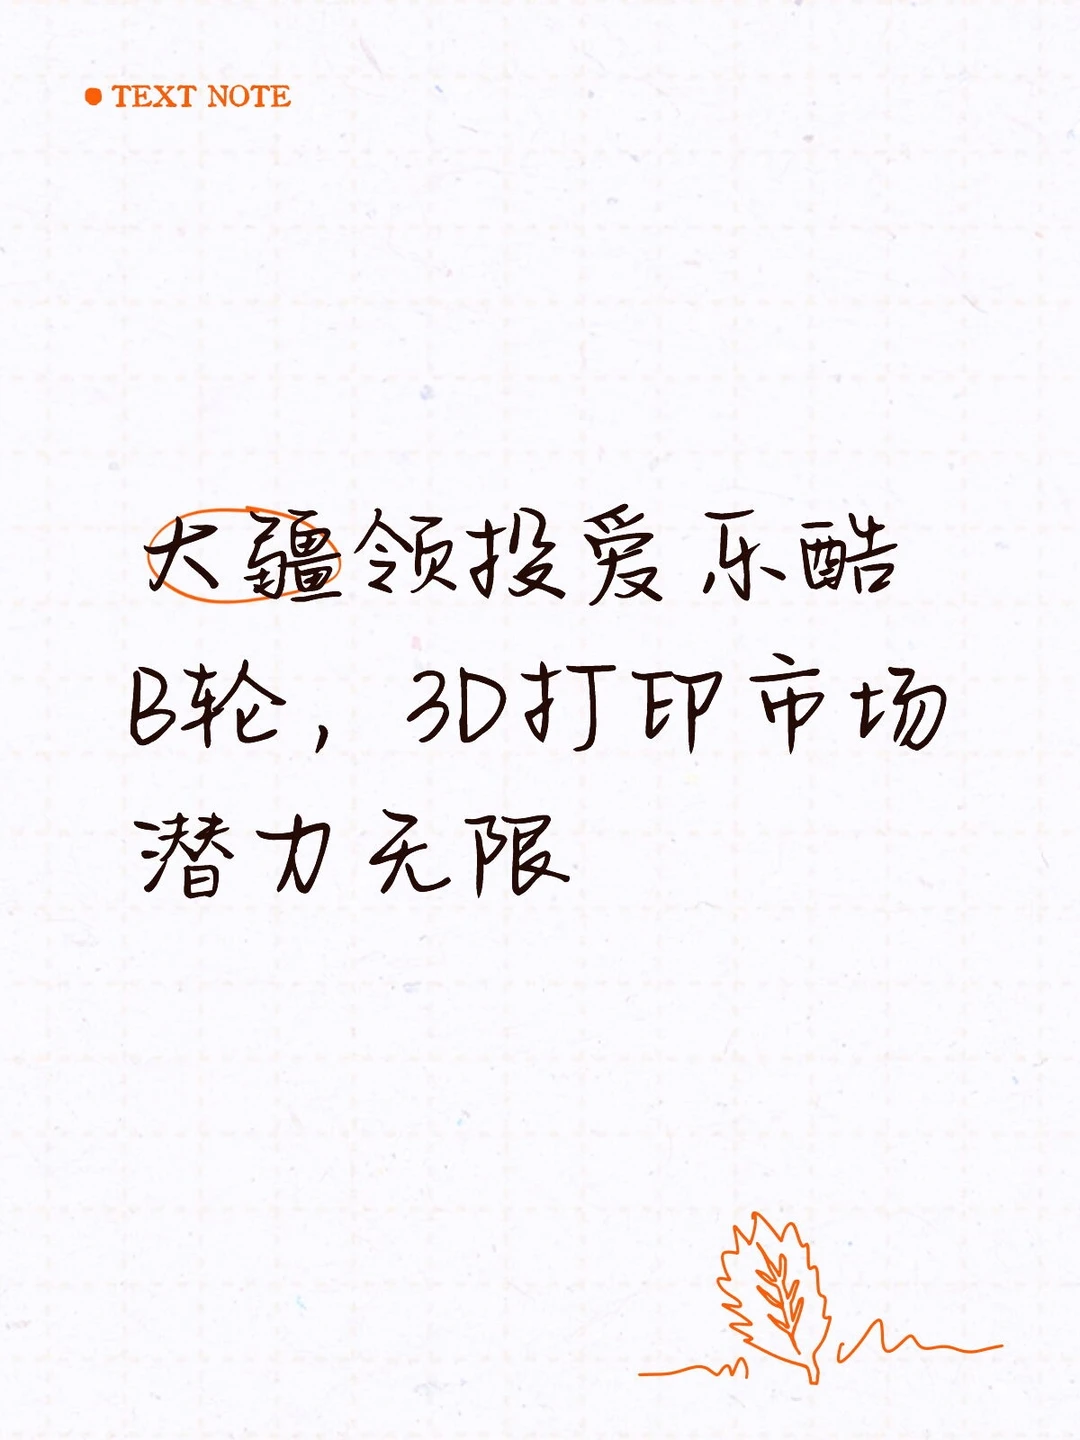 TEXT NOTE
大疆领投爱乐酷
B轮，3D打印市场
潜力无限